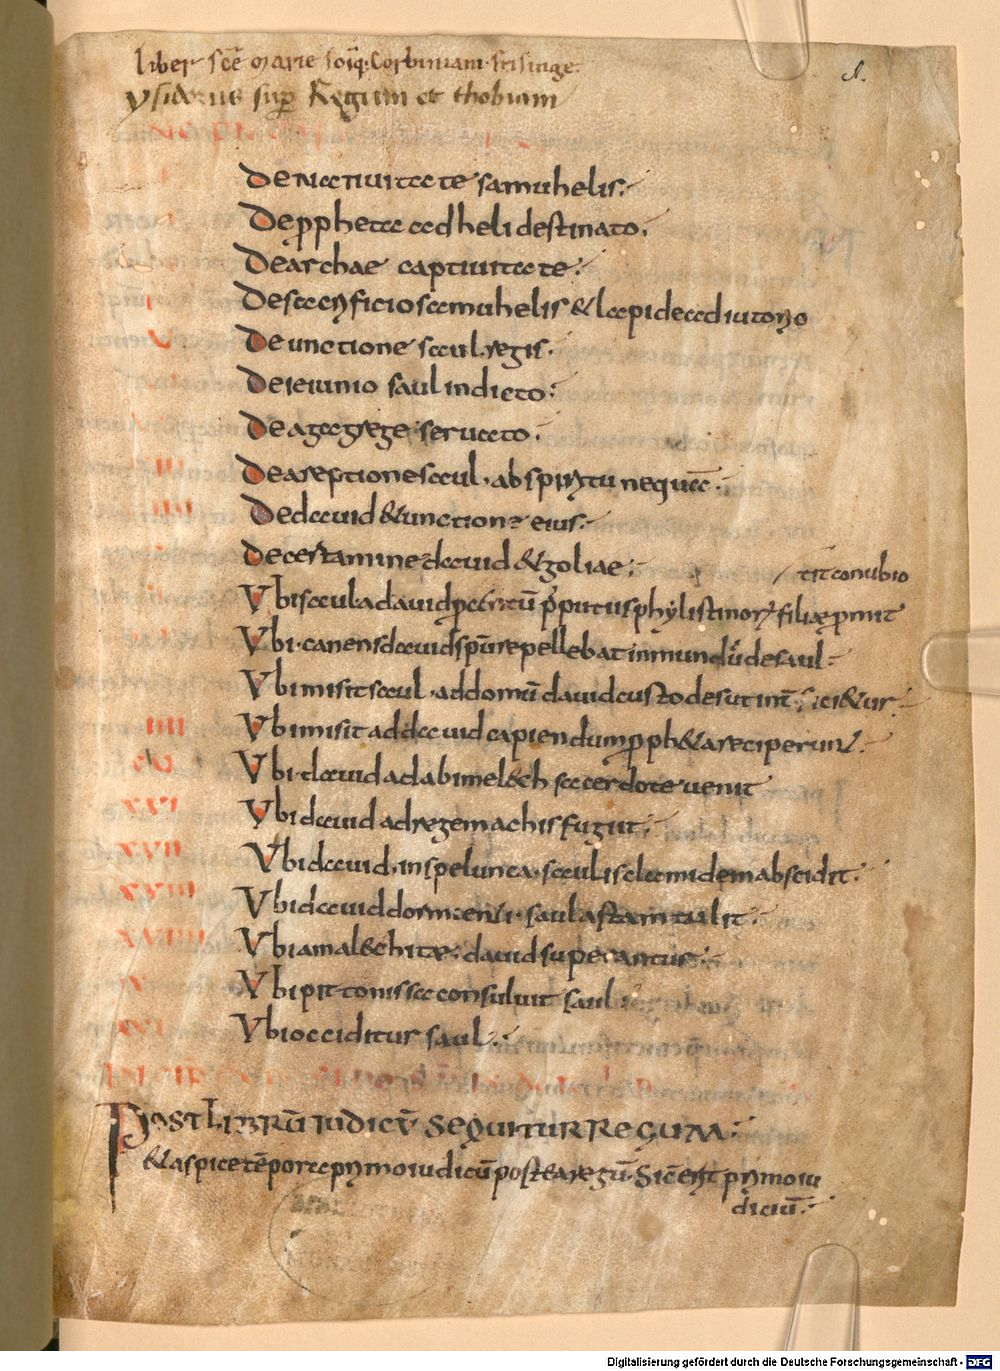 liber sce marie sciq; Corbiniani frisinge
ysidorus sup Regum et thobiam
De natiuitate samuhelis
De ppheta ad heli destinato
De archae captiuitate
De sacrificio samuhelis & lapide adiutorio
De unctione saul regis
De ieiunio saul indicto
De agag rege seruato
De areptione saul ab spiritu nequā
De dauid & unctione eius
De certamine dauid & goliae
tit conubio
Vbi saul a dauid centū pputus phylistinorꝫ filiae pmit
Vbi canens dauid spm repellebat inmundū de saul
Vbi misit saul ad domū dauid custodes ut
Vbi misit ad dauid capiendum pph&are ciperunt
Vbi dauid ad abimelech sacerdote uenit
Vbi dauid ad regem achis fugiit
Vbi dauid in spelunca saulis clamidem abscidit
Vbi dauid dormienti saul astam tulit
Vbi amalechitae dauid superantur
Vbi pitonissa consuluit saul
Vbi occiditur saul
IIII
XVI
XVII
XVIII
XVIIII
Post librū iudicū sequitur regum
& aspice tēpora primo iudicū postea regū. Sic erit primo iu
diciū
Digitalisierung gefördert durch die Deutsche Forschungsgemeinschaft - DFG